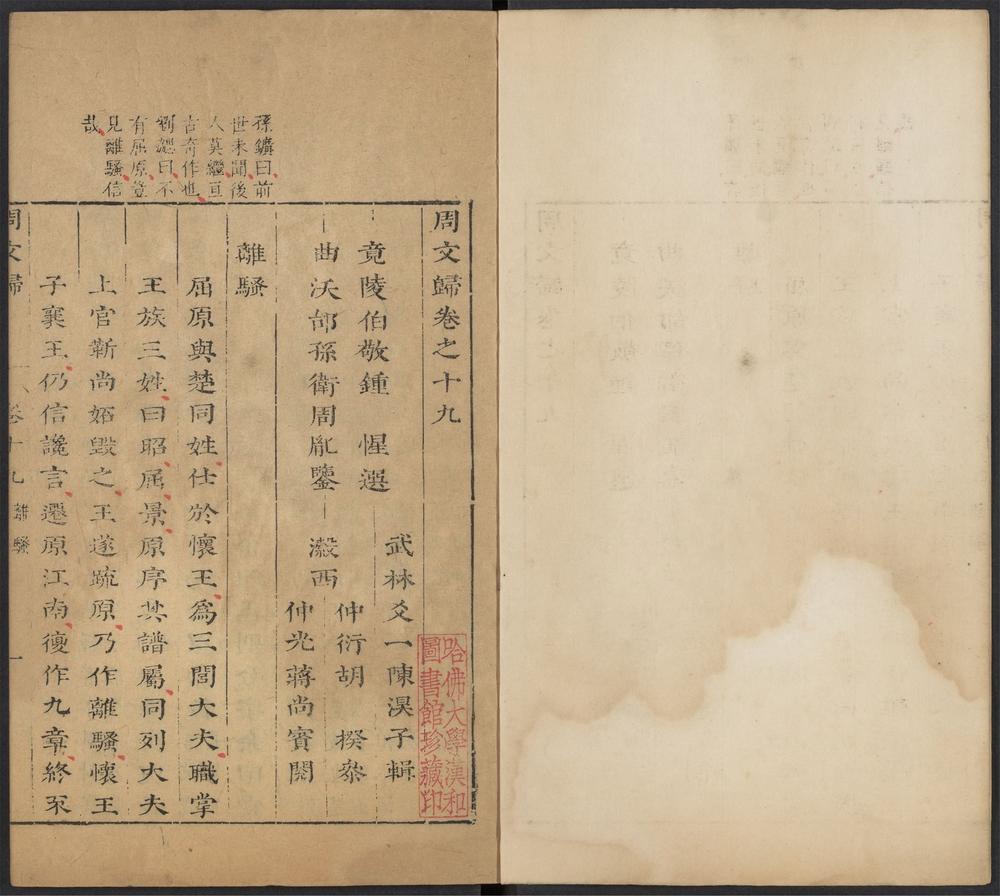 孫鑛曰前
世未聞後
人莫繼亘
古奇作也
劉勰曰不
有屈原豈
見離騷信
哉
周文歸卷之十九
竟陵伯敬鍾惺選
曲沃邰孫衛周胤鑒
武林爻一陳淏子輯
瀫西
仲衍胡揆叅
仲光蔣尚賓閱
離騷
屈原與楚同姓仕於懷王爲三閭大夫職掌
王族三姓曰昭屈景原序其譜屬同列大夫
上官靳尚妬毀之王遂疏原乃作離騷懷王
子襄王仍信讒言遷原江南復作九章終不
周文歸
卷十九
離騷
一
哈佛大學漢和
圖書館珍藏印